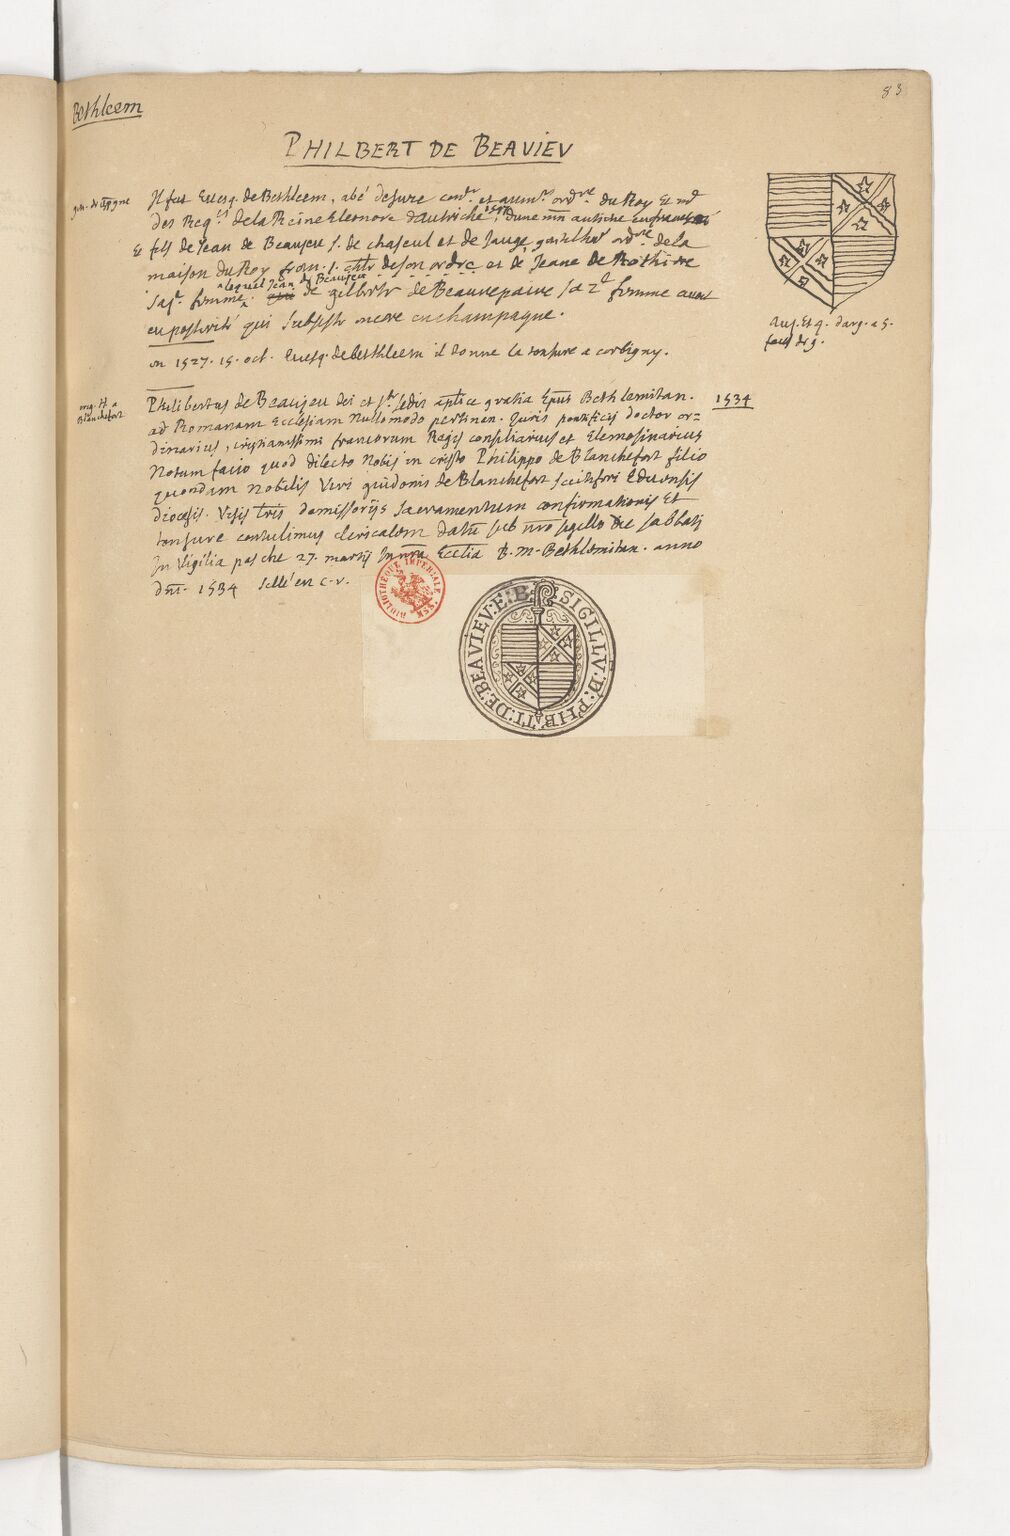 83
Bethleem
PHILBERT DE BEAVIEV
Il fut Euesq. de Bethleem, abé de Jure conr. et aumr. ordre. du Roy Et md
des Reqtes de la Reine Eleonore dautriche dune mon antiene
Et fils de Jean de Beaujeu s. de chaseul et de Jauge gentilhr ordre de la
maison du Roy fran. 1. chlr de son ordre et de Jeane de Rothie
sa 1e. femme. lequel Jean de Beaujeu de de Beaurepaire sa 2e femme auoit
eu posterité qui subsiste encore en champagne.
en 1527. 15. oct. Euesq. de bethleem il donne la tonsure a corbigny.
Aux. Et 4. d'arg. a 5.
orig. H a
Blanchefort
1534
Philibertus de Beaujeu dei et ste sedis aplice gratia Epus Bethlemitan.
ad Romanam Ecclesiam nullo modo pertinen. Juris pontificij doctor or=
dinarius, cristianissimi francorum Regis consiliarius et Elemosinarius
Notum facio quod dilecto Nobis in cristo Philippo de Blanchefort filio
quondam nobilis Viri guidonis de Blanchefort Eduensis
diocesis. Visis lris domissorijs Sacramentum confirmationis Et
tonsure contulimus clericalem datu sub nro sigillo die sabbati
In Vigilia pasche 27. martij In nra Ecclia B. M. Bethlemitan. anno
dni. 1534 sellé en c. r.
BIBLIOTHÈQUE IMPÉRIALE MSS.
SIGILLV.D.PHBTI.DE.BEAVIEV.E.B.